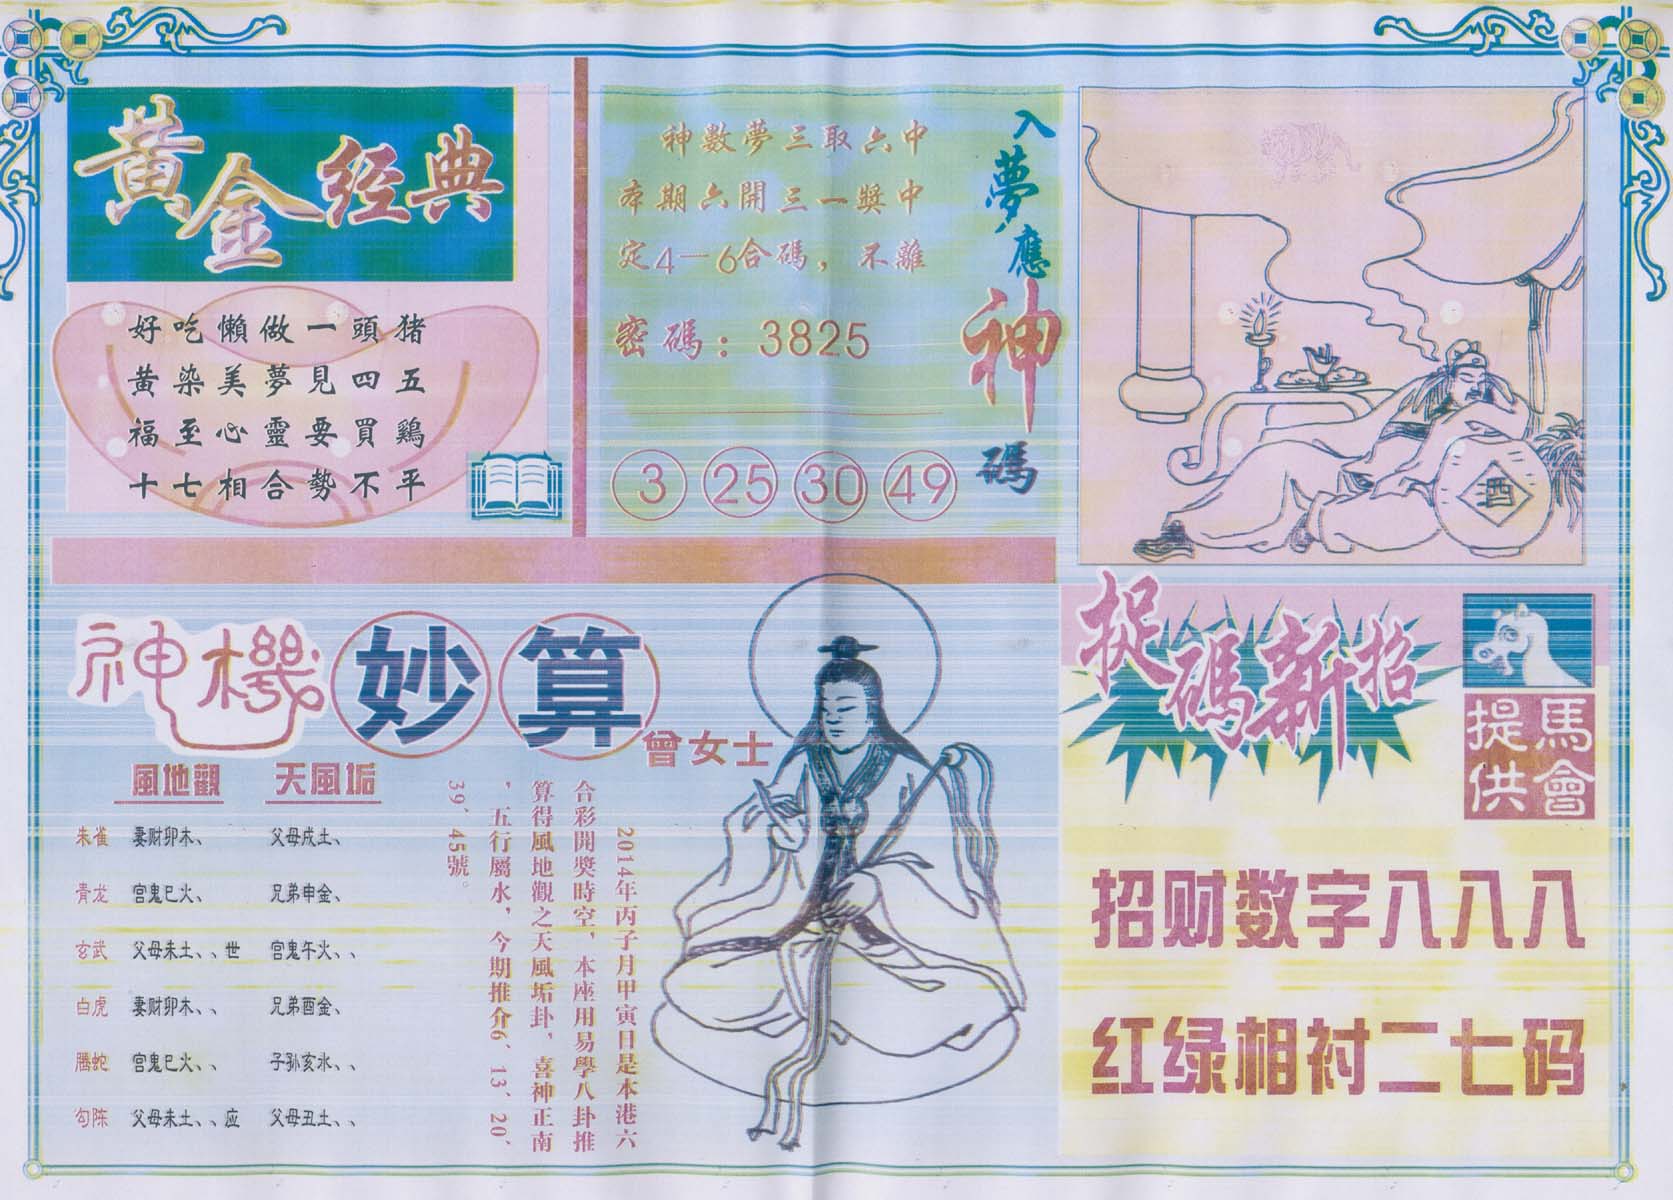 黄金经典
好吃懶做一頭猪
黄染美夢見四五
福至心靈要買鷄
十七相合勢不平
神數夢三取六中
本期六開三一獎中
定4—6合碼，不離
密碼：3825
3 25 30 49
入夢應神碼
酉
神機妙算
曾女士
風地觀 天風垢
朱雀 妻财卯木、 父母戌土、
青龙 官鬼巳火、 兄弟申金、
玄武 父母未土、、世 官鬼午火、、
白虎 妻财卯木、、 兄弟酉金、
腾蛇 官鬼巳火、、 子孙亥水、、
勾陈 父母未土、、应 父母丑土、、
2014年丙子月甲寅日是本港六
合彩開獎時空，本座用易學八卦推
算得風地觀之天風垢卦，喜神正南
，五行屬水，今期推介6、13、20、
39、45號。
捉碼新招
馬會
提供
招财数字八八八
红绿相衬二七码